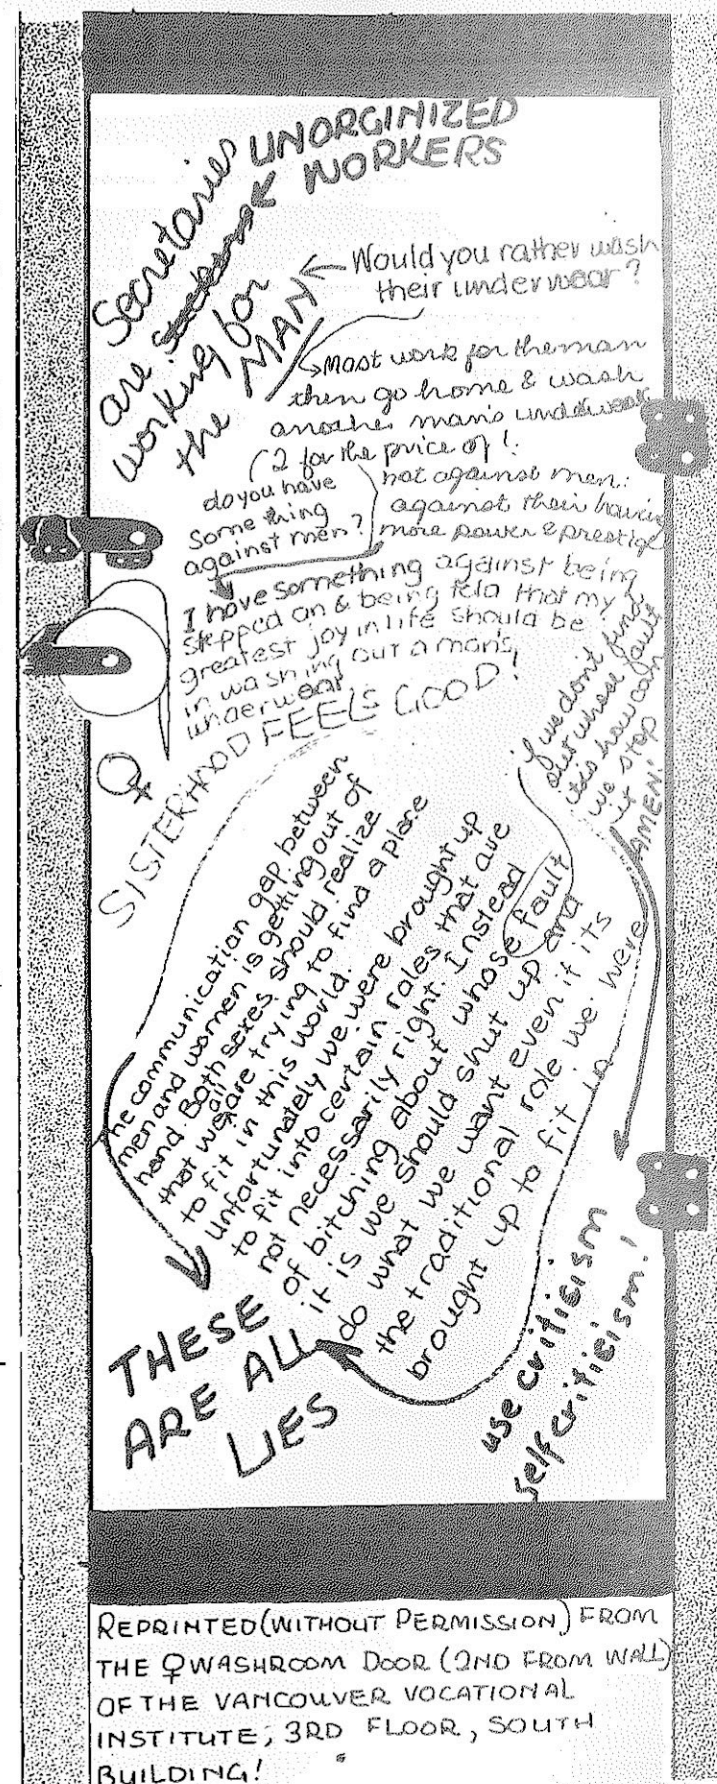 Secretaries
are
working for
the MAN
UNORGINIZED
WORKERS
Would you rather wash
their underwear?
Most work for the man
then go home & wash
another man's underwear
2 for the price of 1.
do you have
something
against men?
not against men:
against their having
more power & prestige
I have something against being
stepped on & being told that my
greatest joy in life should be
in washing out a man's
underwear
SISTERHOOD FEELS GOOD!
♀
if we don't find
out whose fault
it is how can
we stop
it
AMEN!
he communication gap between
men and women is getting out of
hand. Both sexes should realize
that we all are trying to find a place
to fit in this world.
Unfortunately we were brought up
to fit into certain roles that are
not necessarily right. Instead
of bitching about whose fault
it is we should shut up and
do what we want even if its
the traditional role we were
brought up to fit in
THESE
ARE ALL
LIES
use criticism
self criticism!
REPRINTED (WITHOUT PERMISSION) FROM
THE ♀ WASHROOM DOOR (2ND FROM WALL)
OF THE VANCOUVER VOCATIONAL
INSTITUTE, 3RD FLOOR, SOUTH
BUILDING!